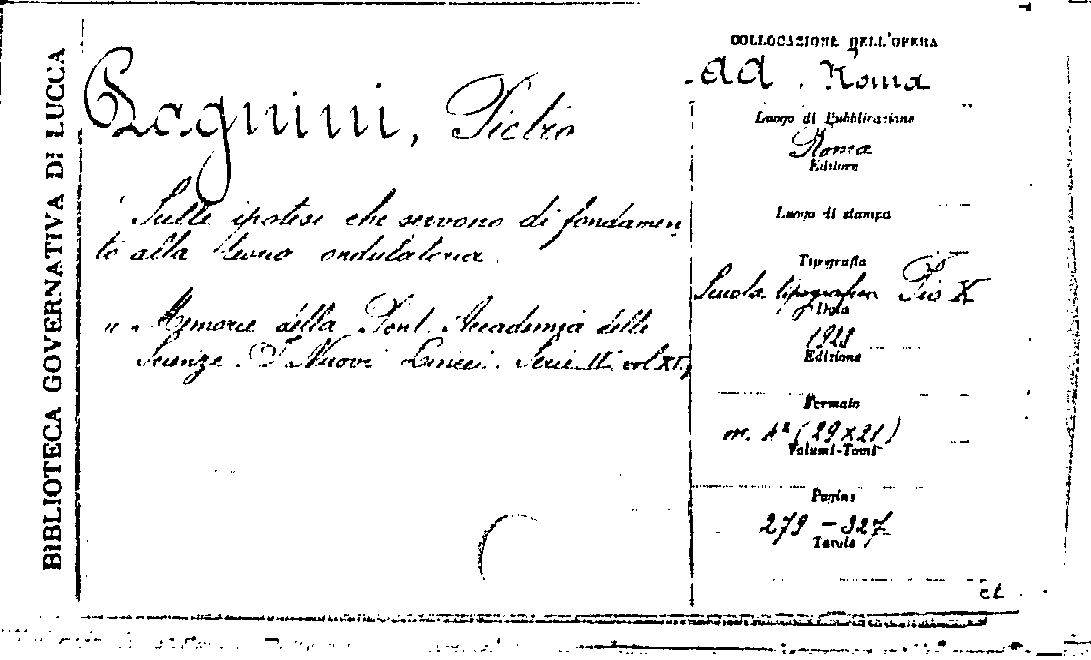 BIBLIOTECA GOVERNATIVA DI LUCCA
Pagnini, Pietro
Sulle ipotesi che servono di fondamen
to alla teoria ondulatoria.
" Memorie della Pont. Accademia delle
Scienze I Nuovi Lincei. Serie II vol XI,
COLLOCAZIONE DELL'OPERA
aa. Roma
Luogo di Pubblicazione
Roma
Editore
Luogo di stampa
Tipografia
Scuola tipografica Pio X
Data
1928
Edizione
Formato
m. 4° (29x21)
Volumi-Tomi
Pagine
279-327
Tavole
ct